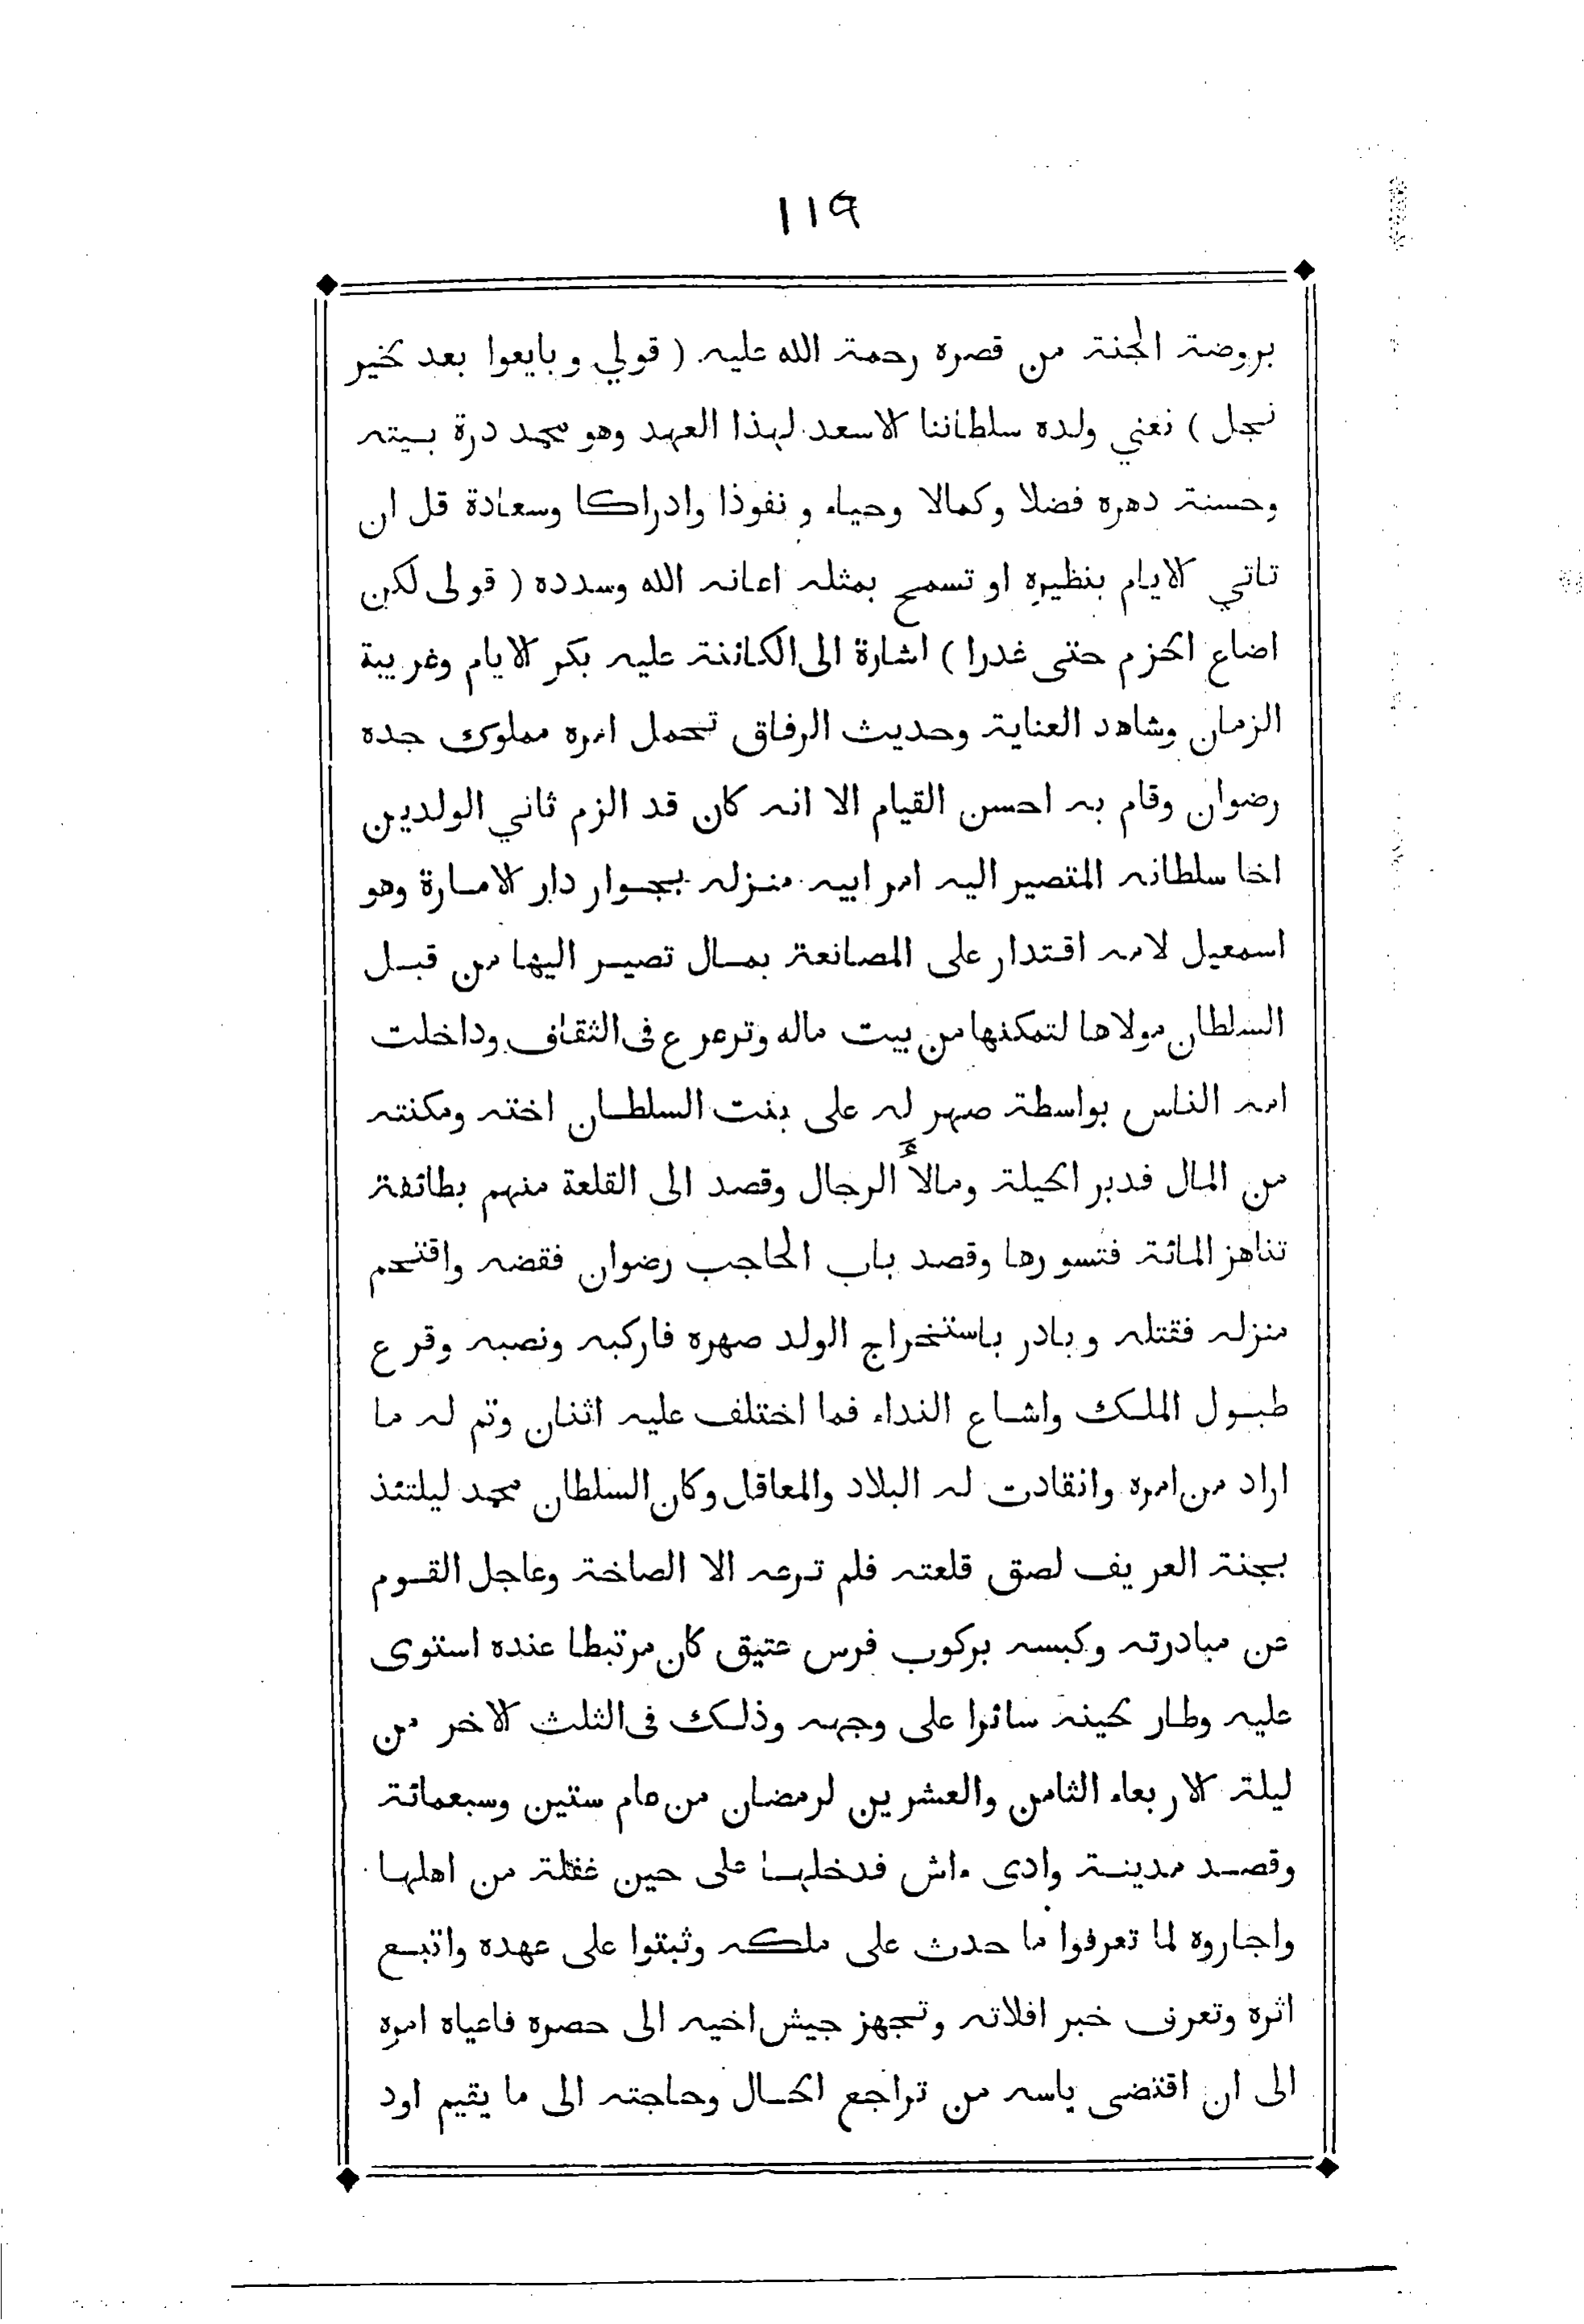 ١١٩
بروضة الجنة من قصره رحمة الله عليه ( قولي وبايعوا بعد بخير
نجل ) نعني ولده سلطاننا الاسعد لهذا العهد وهو محمد درة بيته
وحسنة دهره فضلا وكمالا وحياء ونفوذا وادراكا وسعادة قل ان
تاتي الايام بنظيره او تسمح بمثله اعانه الله وسدده ( قولى لكن
اضاع الحزم حتى غدرا ) اشارة الى الكائنة عليه بكر الايام وغريبة
الزمان وشاهد العناية وحديث الرفاق تحمل امره مملوك جده
رضوان وقام به احسن القيام الا انه كان قد الزم ثاني الولدين
اخا سلطانه المتصير اليه امر ابيه منزله بجوار دار الامارة وهو
اسمعيل لامه اقتدار على المصانعة بمال تصير اليها من قبل
السلطان مولاها لتمكنها من بيت ماله وترعرع فى الثقاف وداخلت
امه الناس بواسطة صهر له على بنت السلطان اخته ومكنته
من المال فدبر الحيلة ومالأ الرجال وقصد الى القلعة منهم بطائفة
تناهز المائة فتسورها وقصد باب الحاجب رضوان فقضه واقتحم
منزله فقتله وبادر باستخراج الولد صهره فاركبه ونصبه وقرع
طبول الملك واشاع النداء فما اختلف عليه اثنان وتم له ما
اراد من امره وانقادت له البلاد والمعاقل وكان السلطان محمد ليلتئذ
بجنة العريف لصق قلعته فلم ترعه الا الصاخة وعاجل القوم
عن مبادرته وكبسه بركوب فرس عتيق كان مرتبطا عنده استوى
عليه وطار لحينه سائرا على وجهه وذلك فى الثلث الاخر من
ليلة الاربعاء الثامن والعشرين لرمضان من عام ستين وسبعمائة
وقصد مدينة وادى ءاش فدخلها على حين غفلة من اهلها
واجاروه لما تعرفوا ما حدث على ملكه وثبتوا على عهده واتبع
اثره وتعرف خبر افلاته وتجهز جيش اخيه الى حصره فاعياه امره
الى ان اقتضى ياسه من تراجع الحال وحاجته الى ما يقيم اود